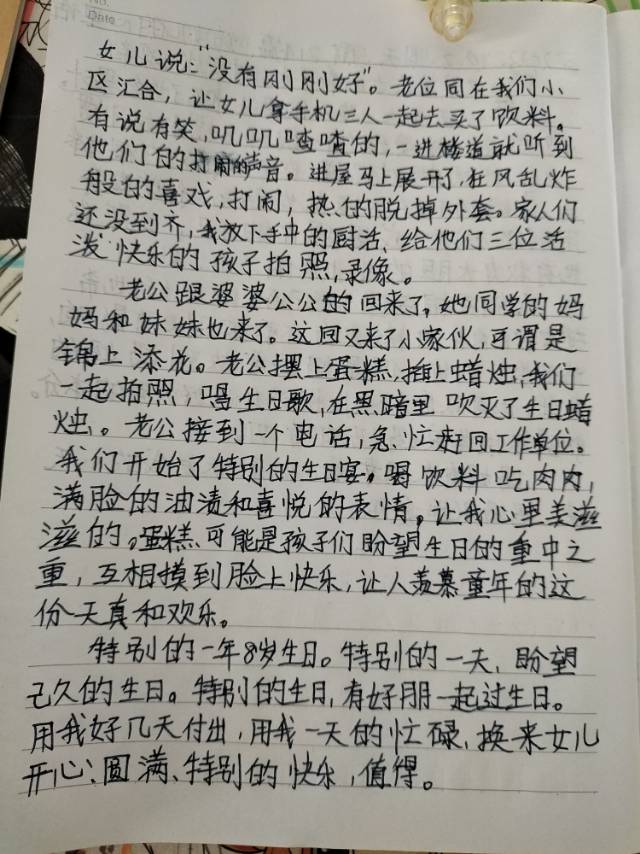 No.
Date
女儿说："没有刚刚好"。老位同在我们小
区汇合，让女儿拿手机三人一起去买了饮料。
有说有笑，叽叽喳喳的，一进楼道就听到
他们的打闹的声音。进屋马上展开了，狂风乱炸
般的喜戏，打闹，热的脱掉外套。家人们
还没到齐，我放下手中的厨活、给他们三位活
泼快乐的孩子拍照，录像。
老公跟婆婆公公的回来了，她同学的妈
妈和妹妹也来了。这回又来了小家伙，可谓是
锦上添花。老公摆上蛋糕，插上蜡烛，我们
一起拍照，唱生日歌，在黑暗里吹灭了生日蜡
烛。老公接到一个电话，急忙赶回工作单位。
我们开始了特别的生日宴。喝饮料吃肉肉，
满脸的油渍和喜悦的表情。让我心里美滋
滋的。蛋糕可能是孩子们盼望生日的重中之
重，互相摸到脸上快乐，让人羡慕童年的这
份天真和欢乐。
特别的一年8岁生日。特别的一天、盼望
已久的生日。特别的生日，有好朋一起过生日。
用我好几天付出，用我一天的忙碌，换来女儿
开心、圆满、特别的快乐，值得。